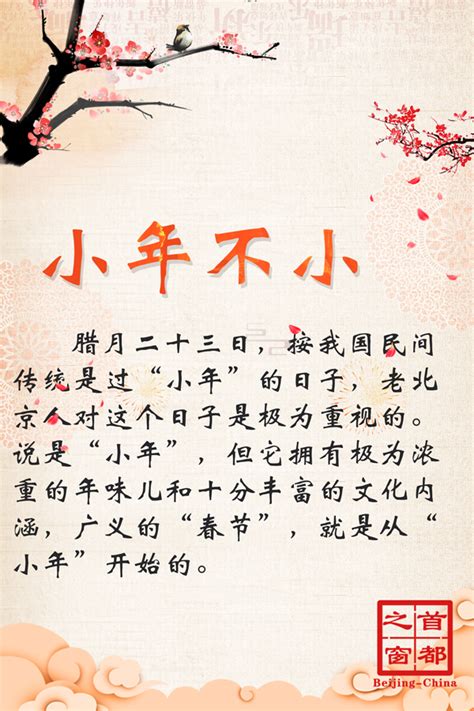 小年不小
腊月二十三日，按我国民间
传统是过“小年”的日子，老北
京人对这个日子是极为重视的。
说是“小年”，但它拥有极为浓
重的年味儿和十分丰富的文化内
涵，广义的“春节”，就是从“
小年”开始的。
首都之窗
Beijing-China